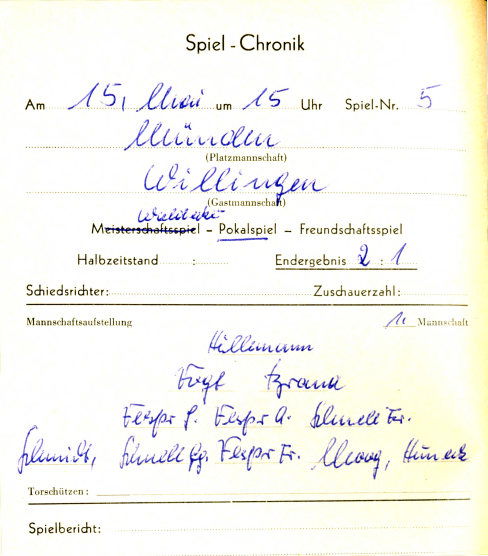 Spiel - Chronik
Am 15. Mai um 15 Uhr Spiel-Nr. 5
Münden
(Platzmannschaft)
Willingen
(Gastmannschaft)
Meisterschaftsspiel – Pokalspiel – Freundschaftsspiel
Halbzeitstand : Endergebnis 2 : 1
Schiedsrichter: Zuschauerzahl:
Mannschaftsaufstellung 1. Mannschaft
Hillemann
Vogt Brand
Vesper A. Schnell Fr.
Schmidt, Schnell Vesper Fr.
Torschützen:
Spielbericht: